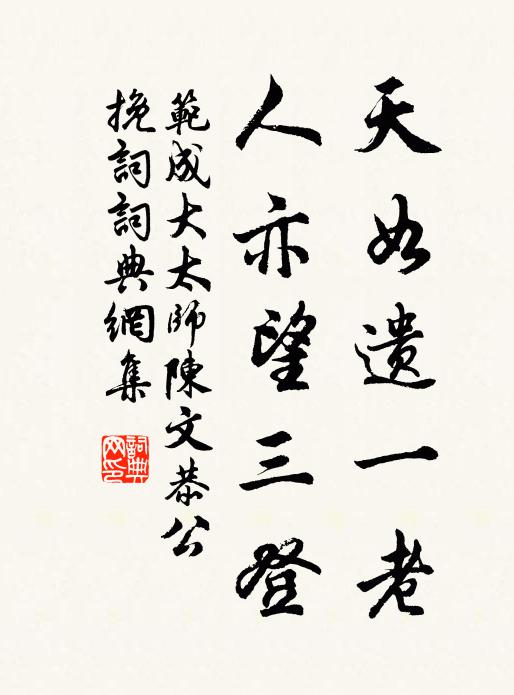 天如遺一老
人亦望三登
範成大太師陳文恭公
挽詞詞典網集
詞典
网印